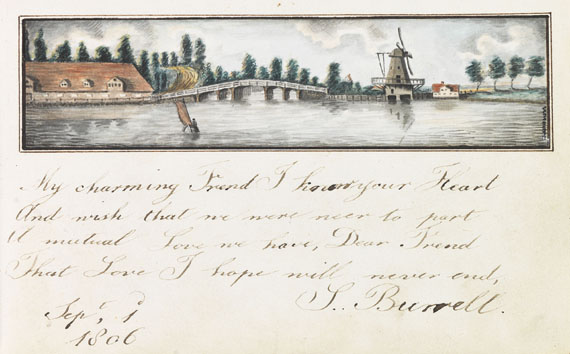 My charming Frend I know your Heart
And wish that we were neer to part
A mutual Love we have, Dear Frend
That Love I hope will never end,
S. Burrell.
Sepr, 1
1806